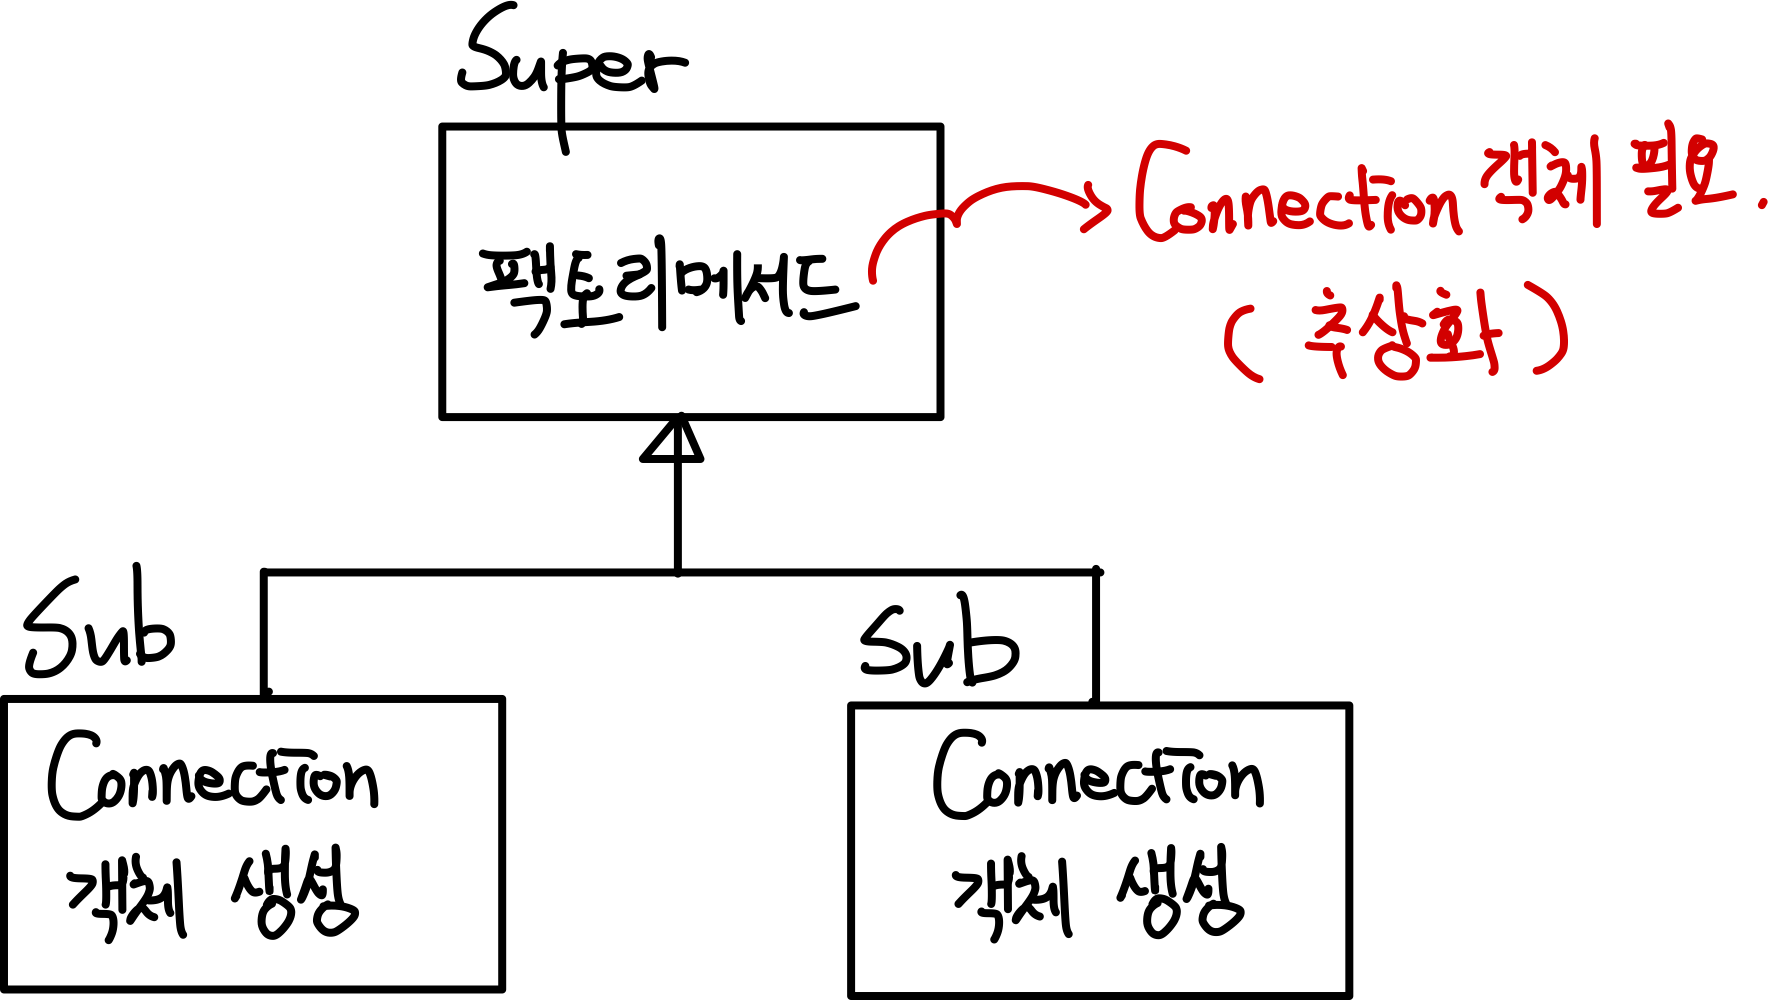 Super
팩토리메서드
Connection 객체 필요.
(추상화)
Sub
Connection
객체 생성
Sub
Connection
객체 생성